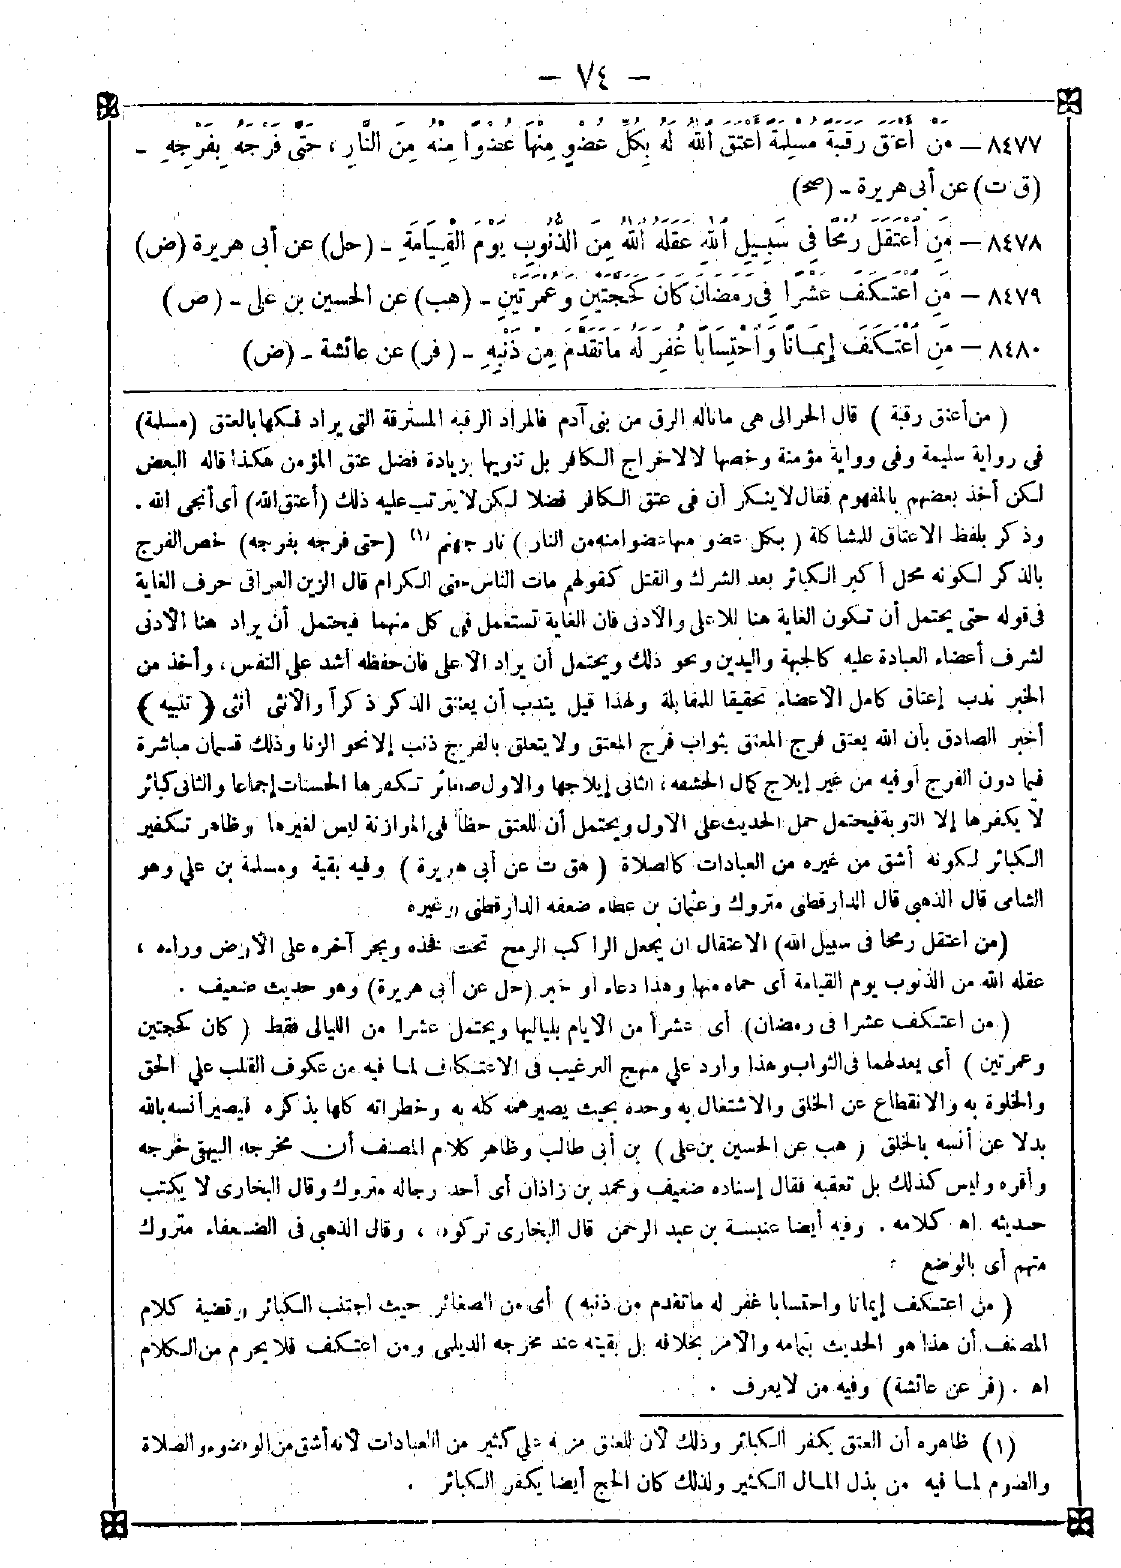 — ٧٤ —
٨٤٧٧ — مَنْ أَعْتَقَ رَقَبَةً مُسْلِمَةً أَعْتَقَ اللهُ لَهُ بِكُلِّ عُضْوٍ مِنْهَا عُضْوًا مِنْهُ مِنَ النَّارِ ، حَتَّى فَرْجَهُ بِفَرْجِهِ —
(ق ت) عن أبى هريرة - (صح)
٨٤٧٨ — مَنِ اعْتَقَلَ رُمْحًا فِى سَبِيلِ اللهِ عَقَلَهُ اللهُ مِنَ الذُّنُوبِ يَوْمَ الْقِيَامَةِ - (حل) عن أبى هريرة (ض)
٨٤٧٩ — مَنِ اعْتَكَفَ عَشْرًا فِى رَمَضَانَ كَانَ كَحَجَّتَيْنِ وَعُمْرَتَيْنِ - (هب) عن الحسين بن على - (ض)
٨٤٨٠ — مَنِ اعْتَكَفَ إِيمَانًا وَاحْتِسَابًا غُفِرَ لَهُ مَا تَقَدَّمَ مِنْ ذَنْبِهِ - (فر) عن عائشة - (ض)
( من أعتق رقبة ) قال الحرالى هى ماناله الرق من بنى آدم فالمراد الرقبة المسترقة التى يراد فكها بالعتق (مسلمة)
فى رواية سليمة وفى رواية مؤمنة وخصها لا لاخراج الكافر بل تنويها بزيادة فضل عتق المؤمن هكذا قاله البعض
لكن أخذ بعضهم بالمفهوم فقال لاينكر أن فى عتق الكافر فضلا لكن لايترتب عليه ذلك (أعتق الله) أى أنجى الله .
وذكر بلفظ الاعتاق للمشاكلة ( بكل عضو منها عضوا منه من النار ) نار جهنم (١) (حتى فرجه بفرجه) خص الفرج
بالذكر لكونه محل أكبر الكبائر بعد الشرك والقتل كقولهم مات الناس حتى الكرام قال الزين العراقى حرف الغاية
فى قوله حتى يحتمل أن تكون الغاية هنا للاعلى والادنى فان الغاية تستعمل فى كل منهما فيحتمل أن يراد هنا الادنى
لشرف أعضاء العبادة عليه كالجبهة واليدين ونحو ذلك ويحتمل أن يراد الاعلى فان حفظه أشد على النفس ، وأخذ من
الخبر ندب إعتاق كامل الاعضاء تحقيقا للمقابلة ولهذا قيل يندب أن يعتق الذكر ذكراً والانثى أنثى ( تنبيه )
أخبر الصادق بأن الله يعتق فرج المعتق بثواب فرج المعتق ولا يتعلق بالفرج ذنب إلا نحو الزنا وذلك قسمان مباشرة
فيما دون الفرج أو فيه من غير إيلاج كمال الحشفة ، الثانى إيلاجها والاول صغائر تكفرها الحسنات إجماعا والثانى كبائر
لا يكفرها إلا التوبة فيحتمل حمل الحديث على الاول ويحتمل أن للعتق حظاً فى الموازنة ليس لغيرها وظاهر تكفير
الكبائر لكونه أشق من غيره من العبادات كالصلاة ( هق ت عن أبى هريرة ) وفيه بقية ومسلمة بن على وهو
الشامى قال الذهبى قال الدارقطنى متروك وعثمان بن عطاء ضعفه الدارقطنى وغيره
(من اعتقل رمحا فى سبيل الله) الاعتقال ان يجعل الراكب الرمح تحت فخذه ويجر آخره على الارض وراءه ،
عقله الله من الذنوب يوم القيامة أى حماه منها وهذا دعاء او خبر (حل عن أبى هريرة) وهو حديث ضعيف .
( من اعتكف عشرا فى رمضان) أى عشراً من الايام بلياليها ويحتمل عشرا من الليالى فقط ( كان كحجتين
وعمرتين ) أى يعدلهما فى الثواب وهذا وارد على منهج الترغيب فى الاعتكاف لما فيه من عكوف القلب على الحق
والخلوة به والانقطاع عن الخلق والاشتغال به وحده بحيث يصير همه كله به وخطراته كلها بذكره فيصير أنسه بالله
بدلا عن أنسه بالخلق ( هب عن الحسين بن على ) بن أبى طالب وظاهر كلام المصنف أن مخرجه البيهقى خرجه
وأقره وليس كذلك بل تعقبه فقال إسناده ضعيف ومحمد بن زاذان أى أحد رجاله متروك وقال البخارى لا يكتب
حديثه اه كلامه . وفيه أيضا عنبسة بن عبد الرحمن قال البخارى تركوه ، وقال الذهبى فى الضعفاء متروك
متهم أى بالوضع
( من اعتكف إيمانا واحتسابا غفر له ماتقدم من ذنبه ) أى من الصغائر حيث اجتنب الكبائر وقضية كلام
المصنف أن هذا هو الحديث بتمامه والامر بخلافه بل بقيته عند مخرجه الديلمى ومن اعتكف فلا يحرم من الكلام
اه . (فر عن عائشة) وفيه من لا يعرف .
(١) ظاهره أن العتق يكفر الكبائر وذلك لأن للعتق مزية على كثير من العبادات لانه أشق من الوضوء والصلاة
والصوم لما فيه من بذل المال الكثير ولذلك كان الحج أيضا يكفر الكبائر .